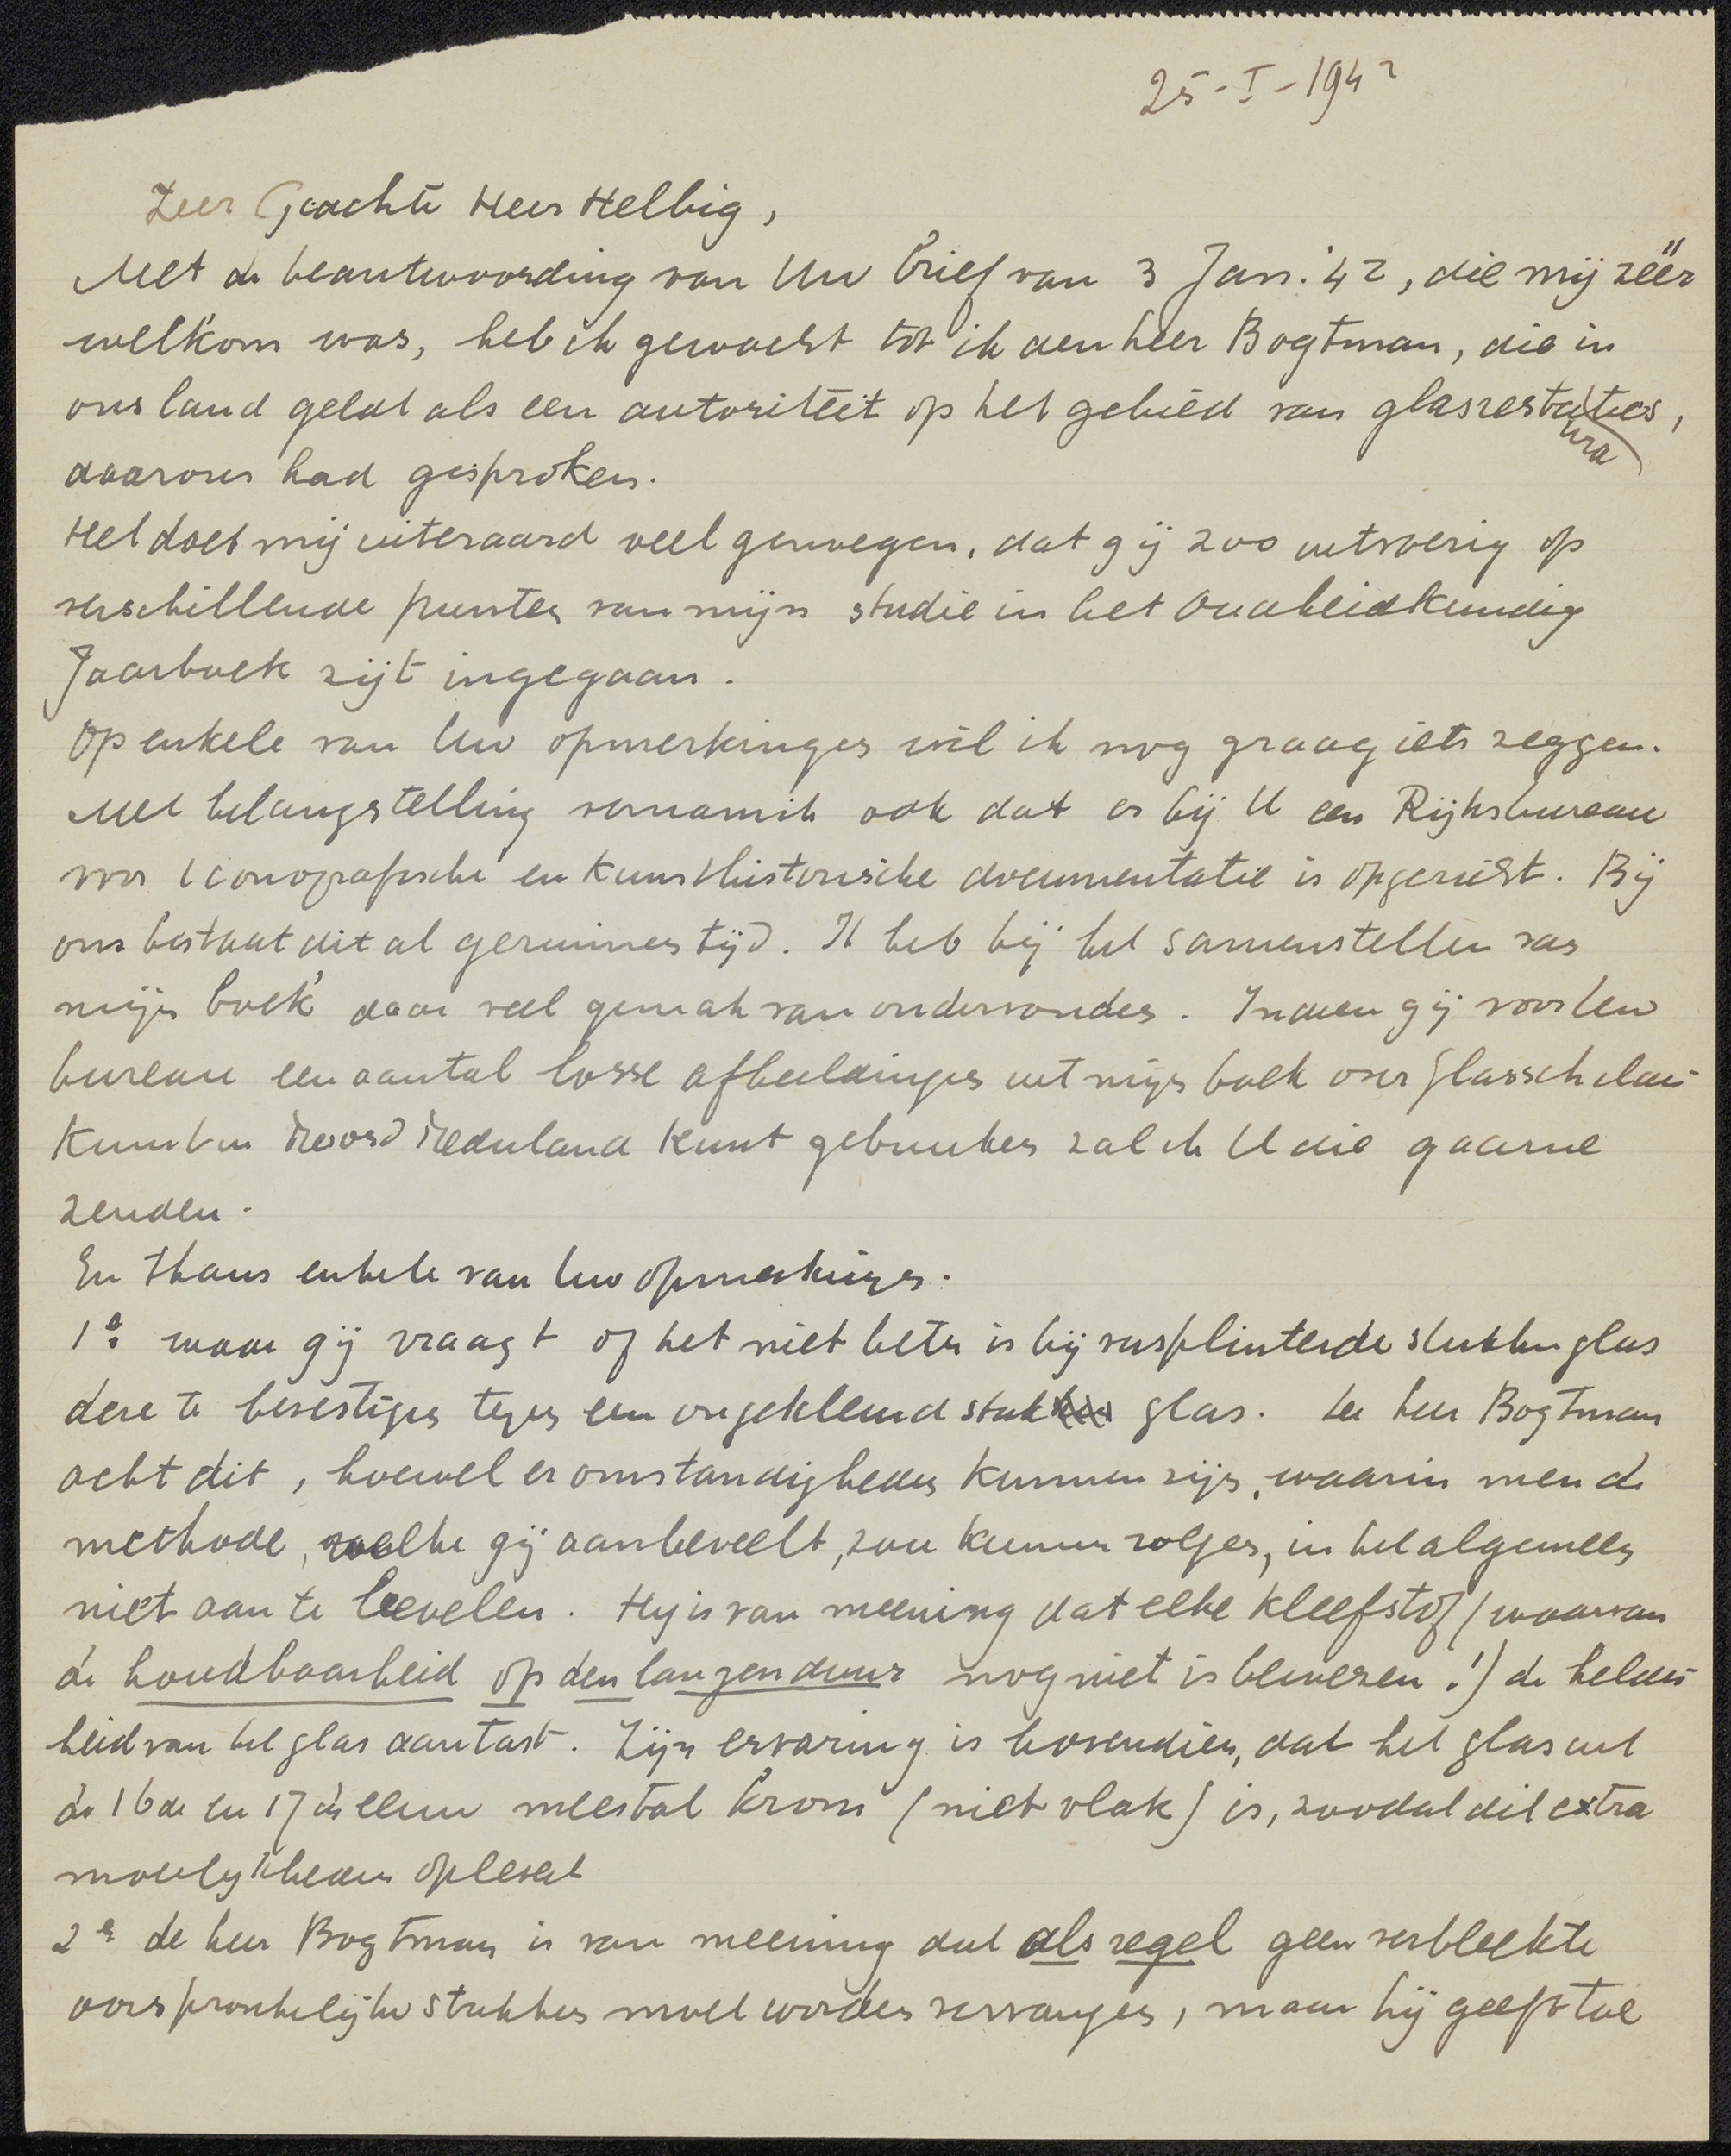 25-I-1942
Zeer Geachte Heer Helbig,
Met de beantwoording van Uw brief van 3 Jan. '42, die mij zéér
welkom was, heb ik gewacht tot ik den heer Bogtman, die in
ons land geldt als een autoriteit op het gebied van glasrestauraties,
daarover had gesproken.
Het doet mij uiteraard veel genoegen, dat gij zoo uitvoerig op
verschillende punten van mijn studie in het Oudheidkundig
Jaarboek zijt ingegaan.
Op enkele van Uw opmerkingen wil ik nog graag iets zeggen.
Met belangstelling vernam ik ook dat er bij U een Rijksbureau
voor iconografische en kunsthistorische documentatie is opgericht. Bij
ons bestaat dit al geruimen tijd. Ik heb bij het samenstellen van
mijn boek daar veel gemak van ondervonden. Indien gij voor Uw
bureau een aantal losse afbeeldingen uit mijn boek over Glasschilder-
kunst in Noord Nederland kunt gebruiken zal ik U die gaarne
zenden.
En thans enkele van Uw opmerkingen.
1e waar gij vraagt of het niet beter is bij versplinterde stukken glas
deze te bevestigen tegen een ongekleurd stuk glas. De heer Bogtman
acht dit, hoewel er omstandigheden kunnen zijn, waarin men de
methode, welke gij aanbeveelt, zou kunnen volgen, in het algemeen
niet aan te bevelen. Hij is van meening dat elke kleefstof (waarvan
de houdbaarheid op den langen duur nog niet is bewezen!) de helder-
heid van het glas aantast. Zijn ervaring is bovendien, dat het glas uit
de 16de en 17de eeuw meestal krom (niet vlak) is, zoodat dit extra
moeilijkheden oplevert
2e de heer Bogtman is van meening dat als regel geen verbleekte
oorspronkelijke stukken moet worden vervangen, maar hij geeft toe